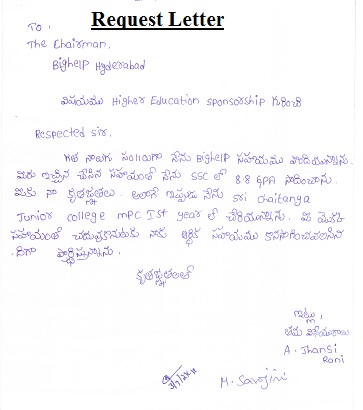 Request Letter
To,
The Chairman,
Bighelp Hyderabad
విషయము Higher Education sponsorship గురించి
Respected sir,
గత నాలుగు సం॥లుగా నేను Bighelp సహాయము పొందియున్నాను.
మీరు ఇచ్చిన చేసిన సహాయంతో నేను SSC లో 8.8 GPA సాధించాను.
మీకు నా కృతజ్ఞతలు. అలాగే ఇప్పుడు నేను Sri Chaitanya
Junior college MPC Ist year లో చేరియున్నాను. మీ యొక్క
సహాయంతో చదువుకొనుటకు నాకు ఆర్థిక సహాయము కొనసాగించవలసిన
దిగా ప్రార్థిస్తున్నాను.
కృతజ్ఞతలతో
ఇట్లు,
తమ విధేయురాలు
A. Jhansi
Rani
M. Sarojini